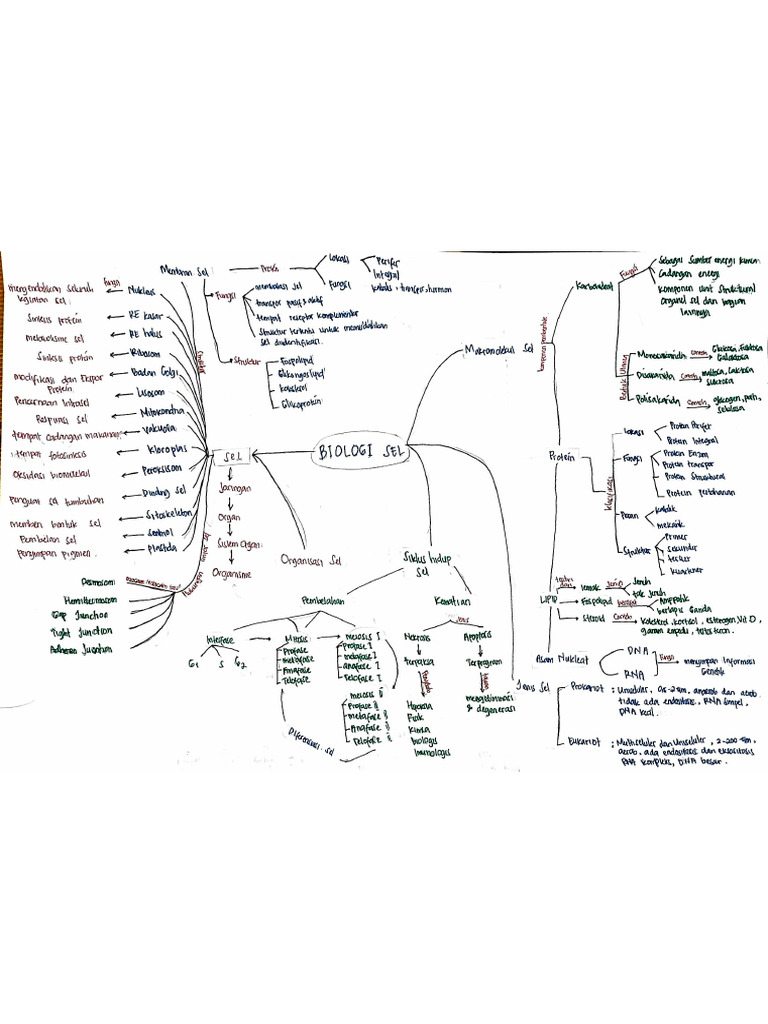 BIOLOGI SEL
Membran Sel
Protein
Lokasi
Perifer
Integral
Fungsi
katalis, transfer, hormon
Fungsi
membatasi sel
transpor pasif & aktif
tempat reseptor komplementer
Struktur tertentu untuk memudahkan
sel diidentifikasi.
Struktur
Fospolipid
Glikoprotein
Fungsi
mengendalikan seluruh
kegiatan sel
Nukleus
Sintesis protein
RE kasar
metabolisme sel
RE halus
Sintesis protein
Ribosom
modifikasi dan Ekspor
Protein
Badan Golgi
Pencernaan Intrasel
Lisosom
Respirasi sel
Mitokondria
tempat cadangan makanan
Vakuola
tempat fotosintesis
Kloroplas
Oksidasi biomolekul
Peroksisom
Penguat sel tumbuhan
Dinding sel
Sitoskeleton
Pembelahan sel
Sentriol
Penyimpan pigmen
Plastida
Hubungan
Desmosom
Hemidesmosom
Gap Junction
Tight Junction
Adherens Junction
SEL
Jaringan
Organ
Sistem Organ
Organisme
Organisasi Sel
Siklus hidup
Sel
Pembelahan
Interfase
G1 S G2
Mitosis
Profase
Metafase
Anafase
Telofase
meiosis I
Profase I
metafase I
anafase I
Telofase I
meiosis II
Profase II
metafase II
Anafase II
Telofase II
Diferensiasi sel
Kematian
Jenis
Nekrosis
Terpaksa
Penyebab
Hipoksia
Fisik
Kimia
biologis
Imunologis
Apoptosis
Terprogram
mengeliminasi
& degenerasi
Makromolekul Sel
Karbohidrat
Fungsi
Sebagai Sumber energi utama
Cadangan energi
komponen unit Struktural
Organel sel dan bagian
lainnya
Monosakarida
Contoh
Glukosa, Fruktosa
Galaktosa
Disakarida
Contoh
maltosa, Laktosa
Sukrosa
Polisakarida
Contoh
glikogen, pati,
selulosa
Protein
Klasifikasi
Lokasi
Protein Perifer
Protein Integral
Fungsi
Protein Enzim
Protein transpor
Protein Struktural
Protein Pertahanan
Peran
katalik
mekanik
Struktur
Primer
Sekunder
tersier
kuartener
LIPID
terdiri
dari
lemak
Jenis
Jenuh
tak Jenuh
Fospolipid
bersifat
Ampipatik
berlapis Ganda
Steroid
Contoh
kolesterol, kortisol, estrogen, Vit D,
garam empedu, testosteron.
Asam Nukleat
DNA
RNA
Fungsi
menyimpan Informasi
Genetik
Jenis Sel
Prokariot
: Uniseluler,
anaerob dan aerob.
tidak ada endositosis, RNA simpel,
DNA kecil.
Eukariot
: Multiseluler dan Uniseluler,
aerob, ada endositosis dan eksositosis
RNA kompleks, DNA besar.